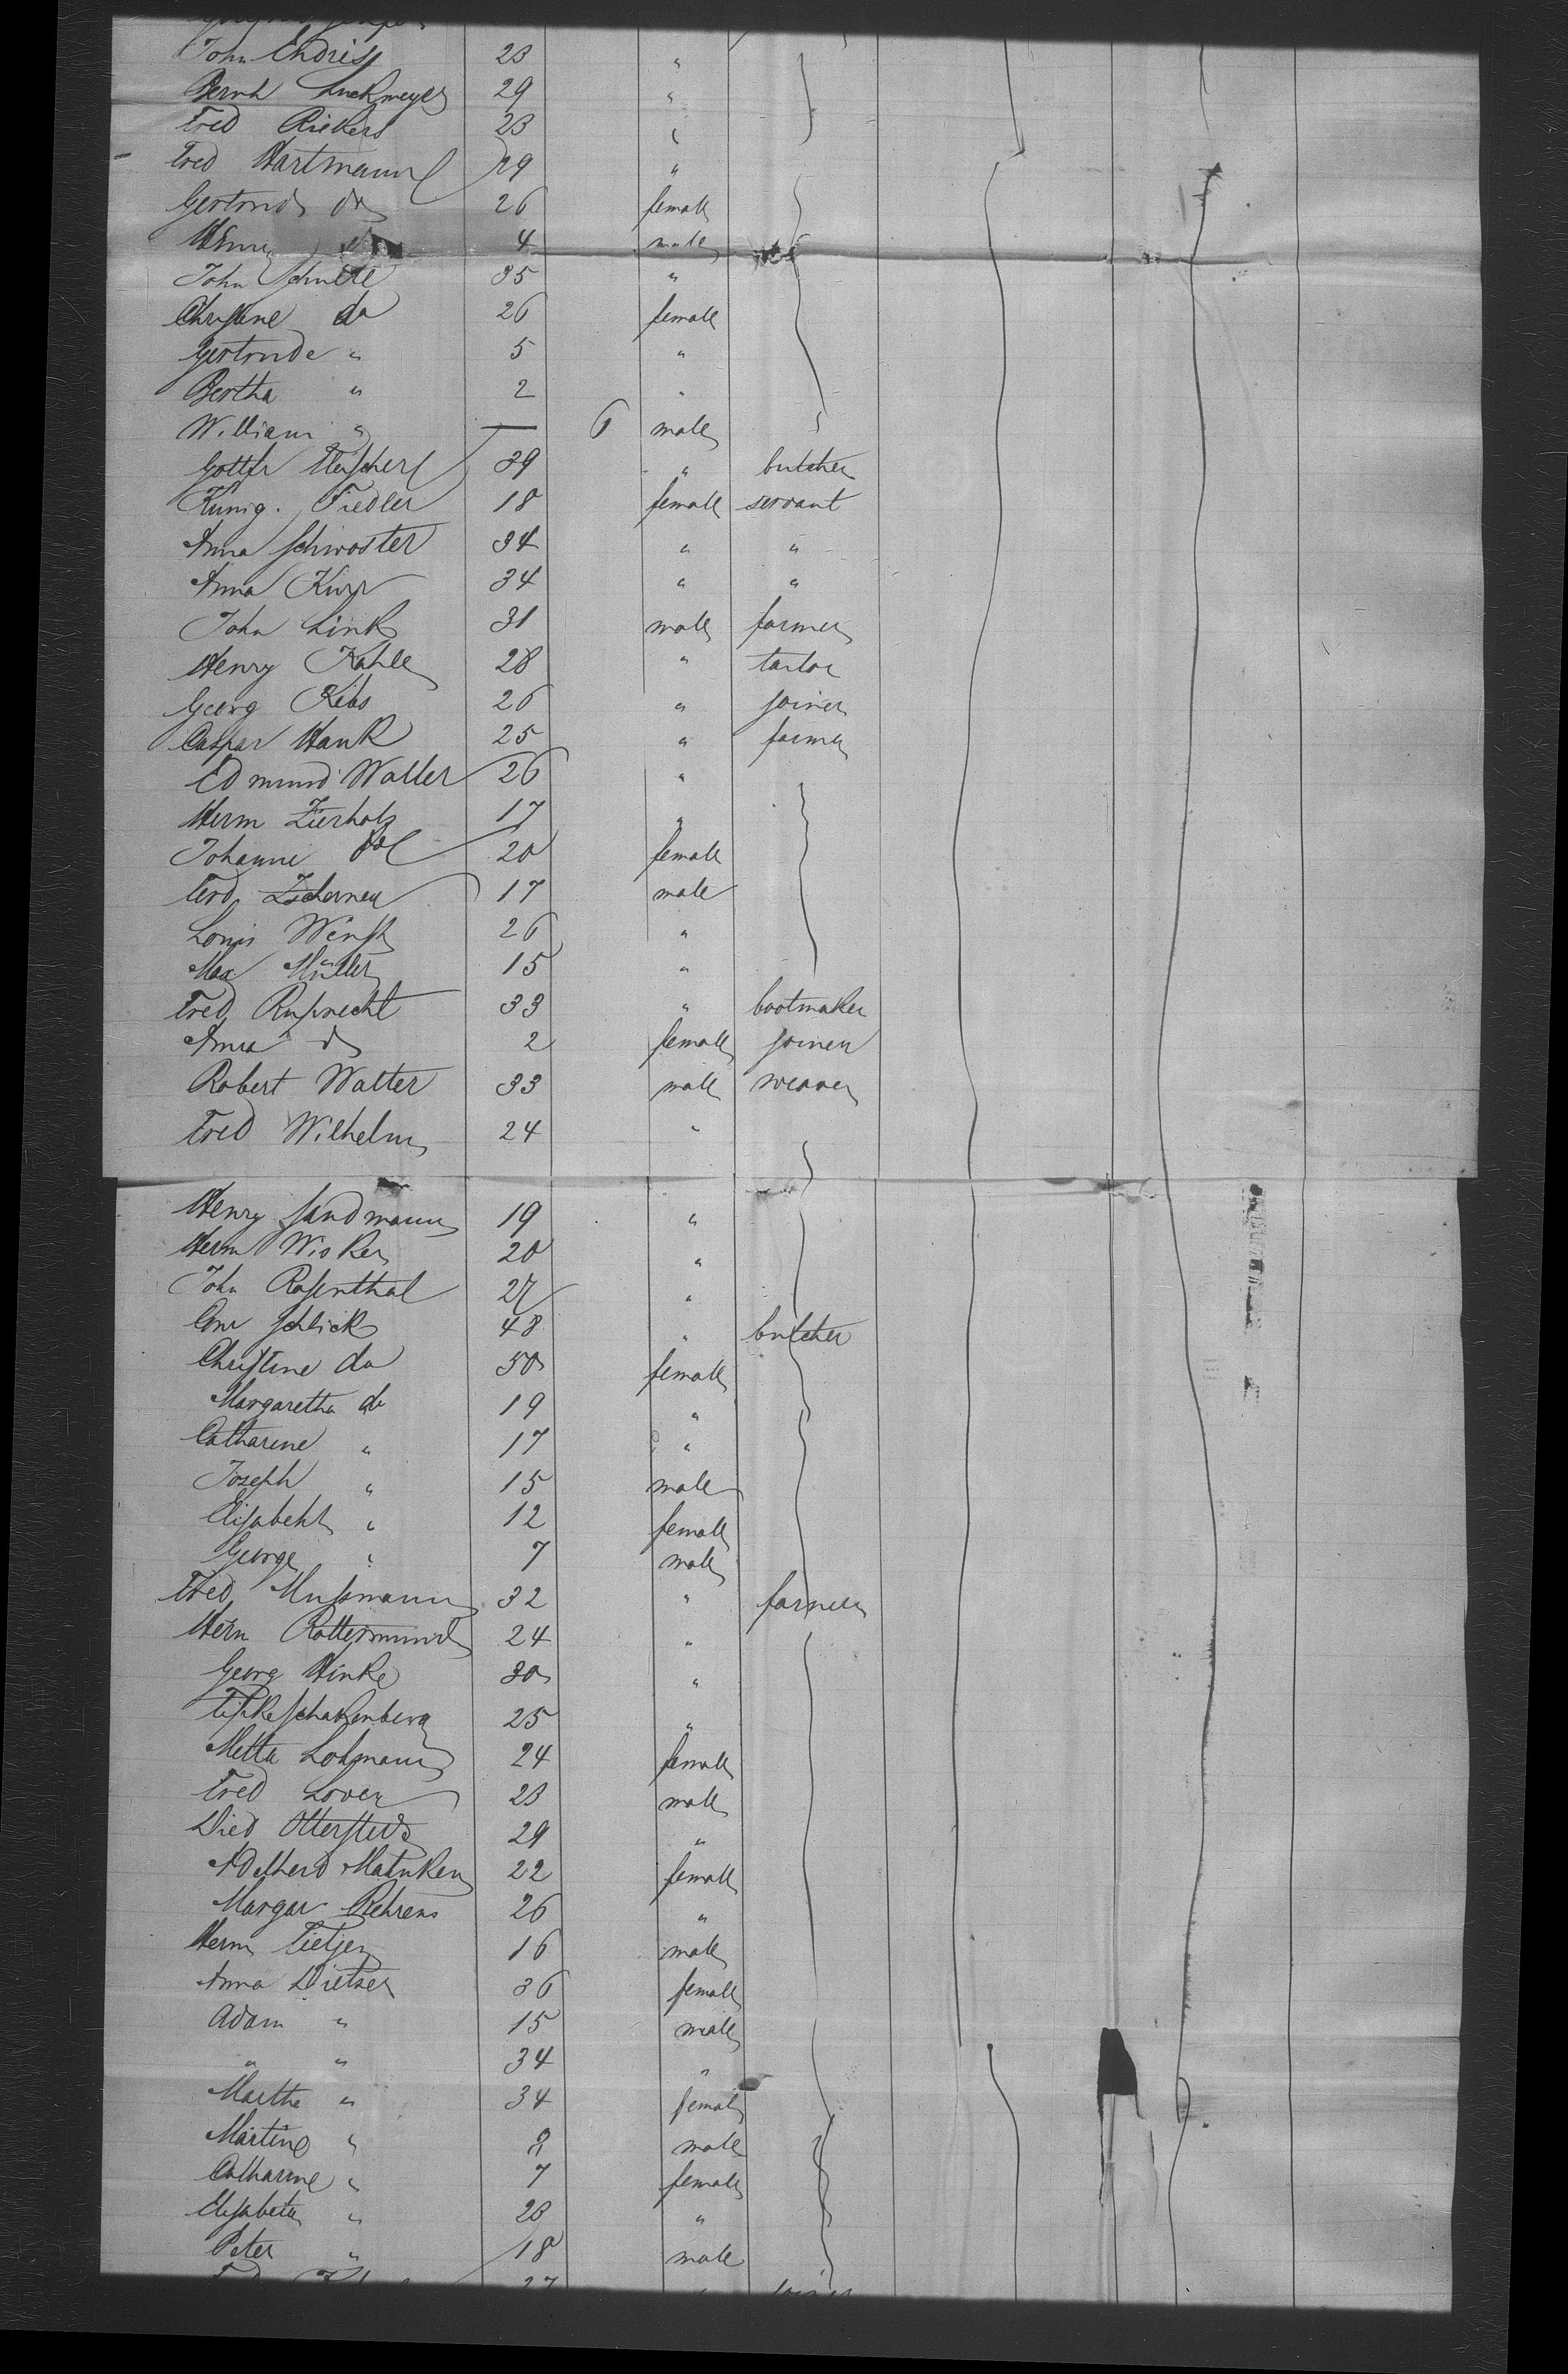 John Endriss 23 "
Bernh Luckmeyer 29 "
Fred Riekers 23 "
Fred Hartmann 29 "
Gertrud do 26 female
Henry do 4 male
John Schulte 35 "
Christine do 26 female
Gertrude " 5 "
Bertha " 2 "
William " — 6 male
Gottfr Fleischer 39 " butcher
Kunig. Fiedler 18 female servant
Anna Schwoster 34 " "
Anna Kurr 34 " "
John Link 31 male farmer
Henry Kahle 28 " tailor
Georg Kibs 26 " joiner
Caspar Hank 25 " farmer
Edmund Walter 26 "
Herm Zierholz 17 "
Johanne do 20 female
Ferd. Zscherneu 17 male
Louis 26 "
Max Müller 15 "
Fred Ruprecht 33 " bootmaker
Anna do 2 female joiner
Robert Walter 33 male weaver
Fred Wilhelm 24 "
Henry Sandmann 19 "
Herm Wisker 20 "
John Rosenthal 27 "
Conr Schlick 48 " butcher
Christine do 50 female
Margaretha do 19 "
Catharine " 17 "
Joseph " 15 male
Elisabeht " 12 female
George " 7 male
Fred Mussmann 32 " farmer
Herm Rottermund 24 "
George Hinke 30 "
25 "
Metta Lohmann 24 female
Fred Lover 23 male
Died Ottersted 29 "
Adelheid Matuken 22 female
Margar Behrens 26 "
Herm Tietjen 16 male
Anna Dietzer 36 female
Adam " 15 male
" " 34 "
Martha " 34 female
Martin " male
Catharine " 7 female
Elisabeth " 23 "
Peter " 18 male
27 " joiner